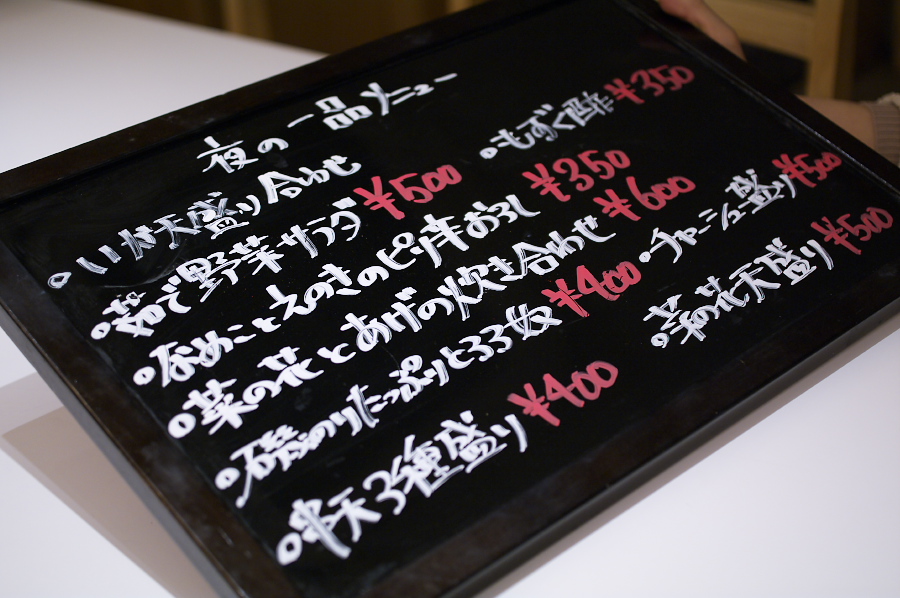 夜の一品メニュー
○いか天盛り合わせ
○茹で野菜サラダ ¥500
○なめことえのきのピリ辛おろし ¥350
○菜の花とあげの炊き合わせ ¥600
○磯のりたっぷりとろろ奴 ¥400
○串天3種盛り ¥400
○もずく酢 ¥350
○チャーシュー盛り ¥500
○菜の花天盛り ¥500